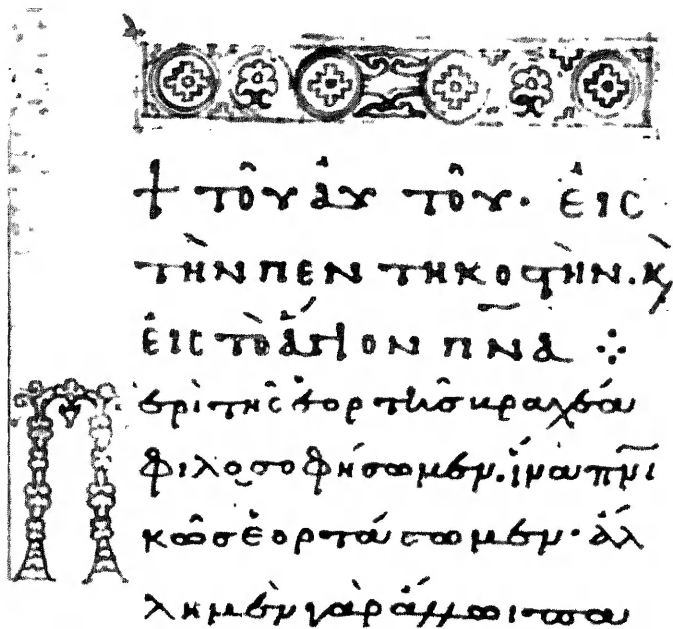 + τοῦ αὐτοῦ· εἰς
τὴν πεντηκοστήν. κ̀
εἰς τὸ ἅγιον π̅ν̅α̅ ⁘
Περὶ τῆς ἑορτῆς βραχέα
φιλοσοφήσωμεν. ἵνα π̅ν̅ι
κῶς ἑορτάσωμεν· ἄλ
λη μὲν γὰρ ἄλλωι παν